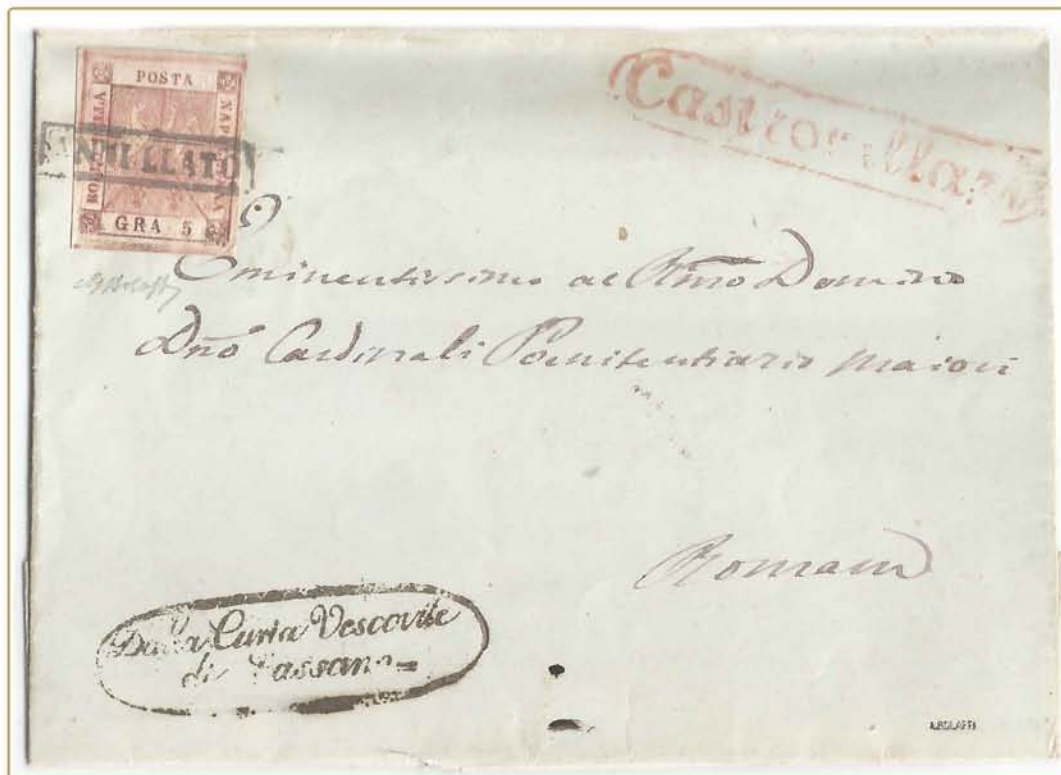 POSTA
NAP
GRA 5
ANNULLATO
Castrovillari
Eminentissimo ac Rmo Domino
Dño Cardinali Penitentiario Maiori
Romam
Dalla Curia Vescovile
di Cassano=
A.BOLAFFI